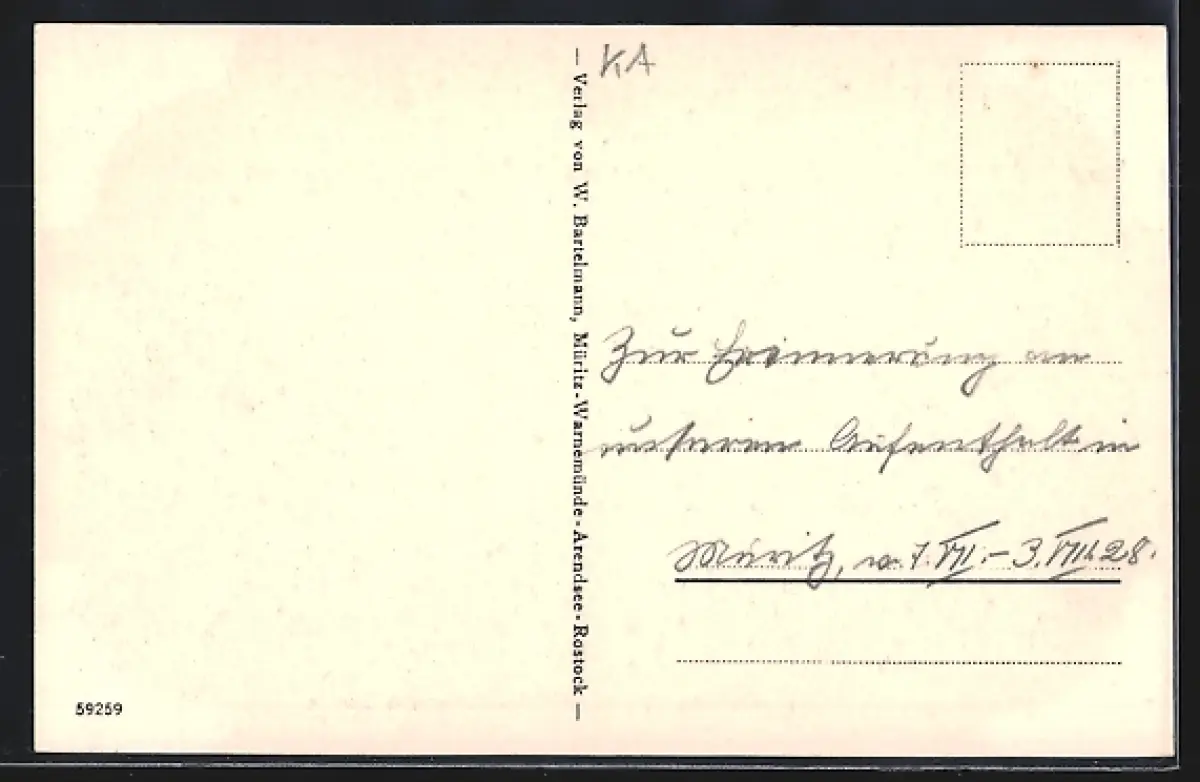 KA
— Verlag von W. Bartelmann, Müritz-Warnemünde-Arendsee-Rostock —
Zur Erinnerung an
unseren Aufenthalt in
Müritz, v. 7. VII. – 3. VIII. 28.
59259